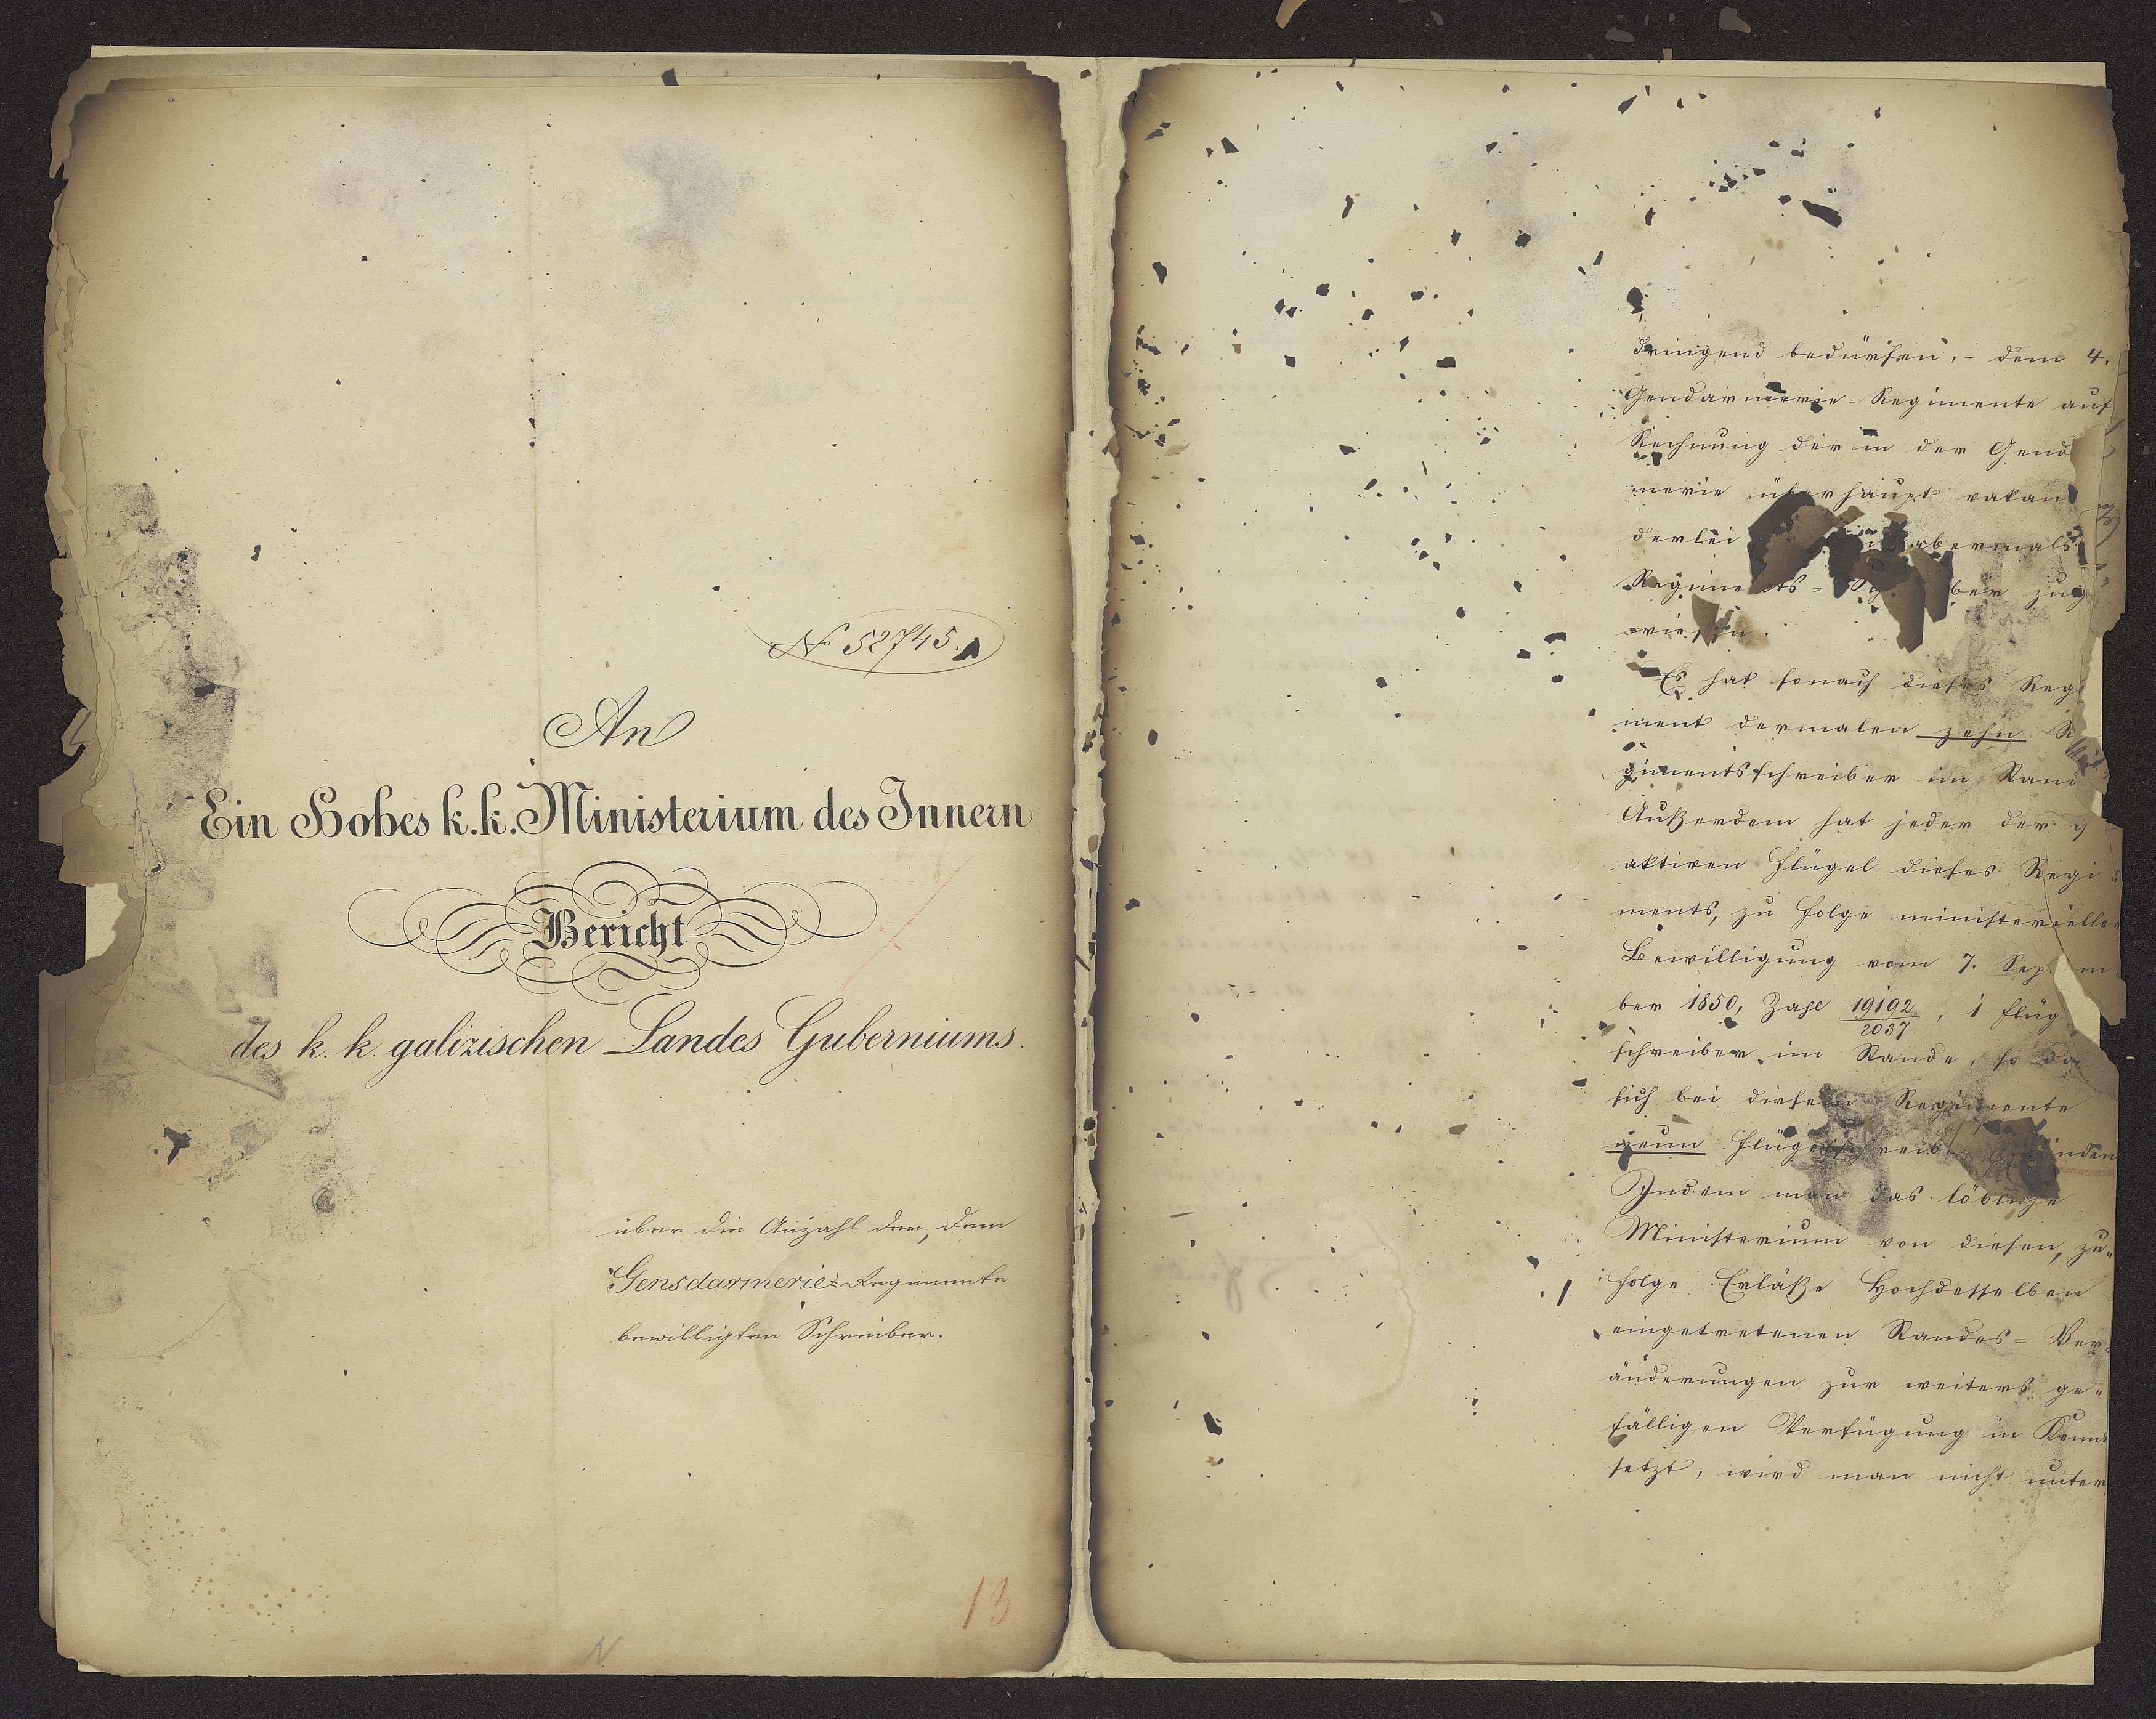 No 52745.
An
Ein Hohes k. k. Ministerium des Innern
Bericht
des k. k. galizischen Landes Guberniums.
über die Anzahl der, dem
Gensdarmerie= Regimente
bewilligten Schreiber.
13
dringend bedürfen, - dem 4.
Gendarmerie=Regimente auf
Rechnung der in der Gend
merie überhaupt vakan
derlei abermals
Regiments= ber zug
wiesen.
Es hat sonach dieses Reg
ment dermalen zehn R
gimentsschreiber im Stand
Außerdem hat jeder der
aktiven Flügel dieses Regi=
ments, zu Folge ministerieller
Bewilligung vom 7. Sep m
ber 1850, Zahl 19192/2037, 1 Flüg
schreiber im Stande, so da
sich bei diesem Regimente
neun Flügelschreib inden
Indem man das löbliche
Ministerium von diesen, zu=
folge Erläße Hochdesselben
eingetretenen Standes= Ver=
änderungen zur weiters ge=
fälligen Verfügung in Kennt
setzt, wird man nicht unter